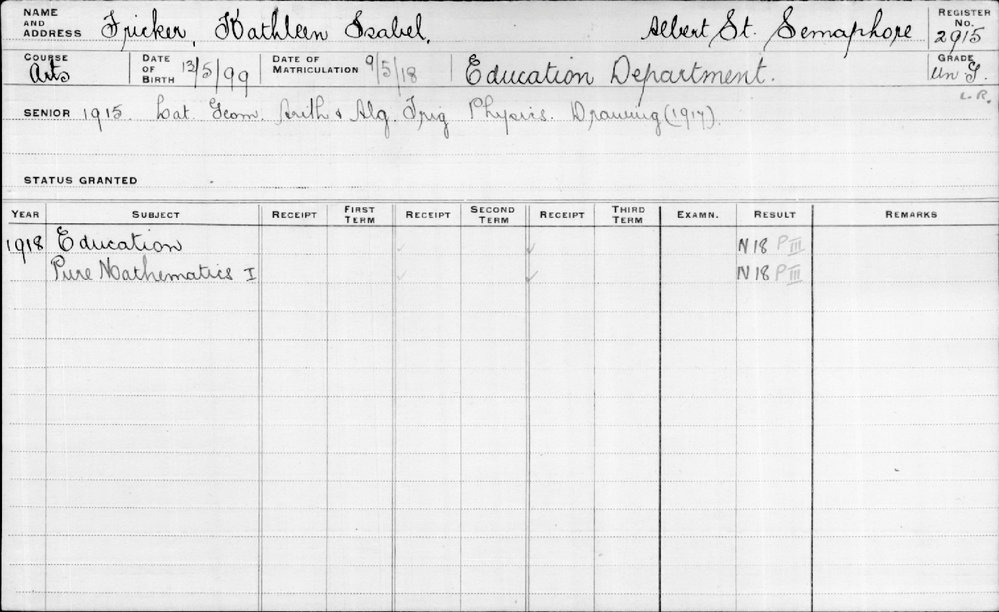 NAME AND ADDRESS Fricker, Kathleen Isabel. Albert St. Semaphore REGISTER NO. 2915
COURSE Arts DATE OF BIRTH 13/5/99 DATE OF MATRICULATION 9/5/18 Education Department. GRADE Un G.
L.R.
SENIOR 1915. Lat. Geom. Arith & Alg. Trig Physics. Drawing (1917).
STATUS GRANTED
YEAR SUBJECT RECEIPT FIRST TERM RECEIPT SECOND TERM RECEIPT THIRD TERM EXAMN. RESULT REMARKS
1918 Education ✓ ✓ N18 P III
Pure Mathematics I ✓ ✓ N18 P III